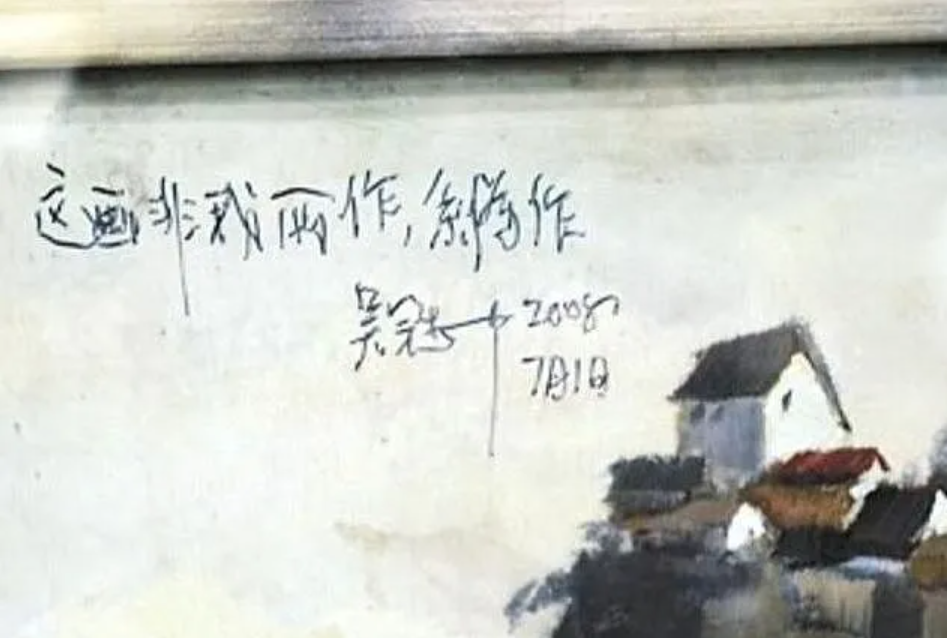 这画非我所作,系伪作
吴冠中 2008.
7月1日